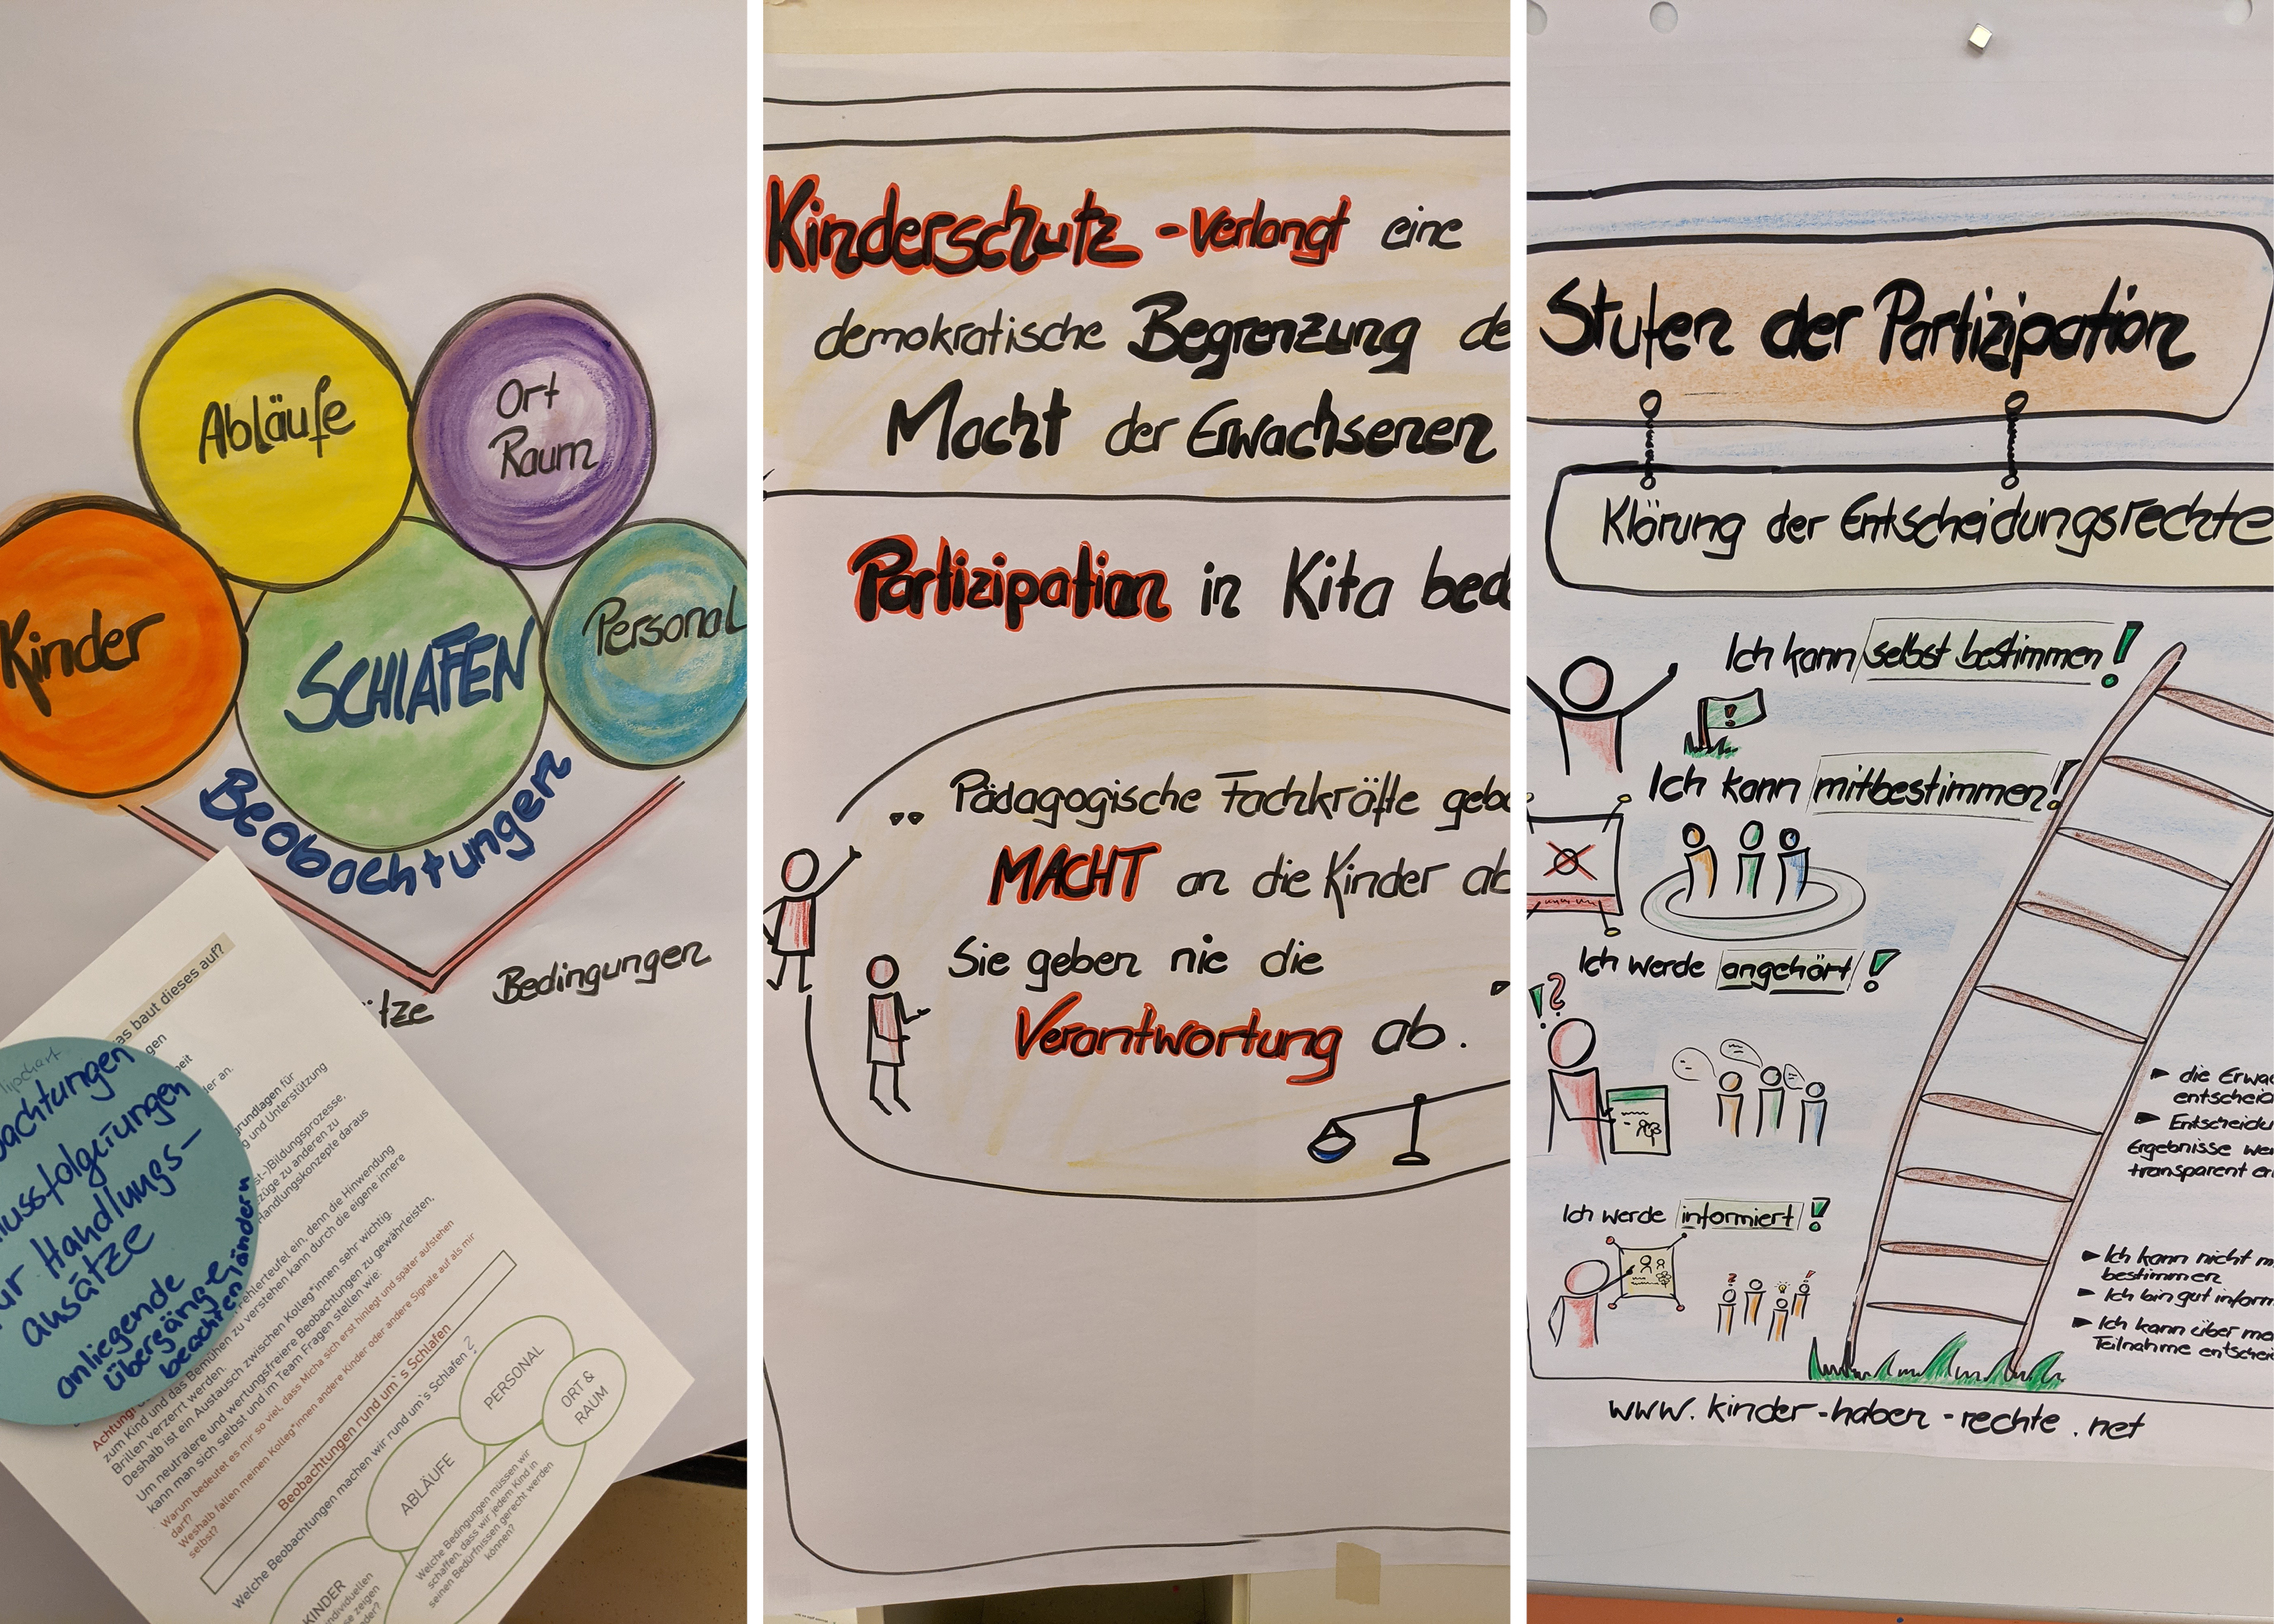 Abläufe
Ort
Raum
Kinder
SCHLAFEN
Personal
Beobachtungen
Bedingungen
as baut dieses auf?
grundlagen für
g und Unterstützung
st-)Bildungsprozesse,
züge zu anderen zu
Handlungskonzepte daraus
Fehlerteufel ein, denn die Hinwendung
zum Kind und das Bemühen zu verstehen kann durch die eigene innere
Brillen verzerrt werden.
Deshalb ist ein Austausch zwischen Kolleg*innen sehr wichtig.
Um neutralere und wertungsfreiere Beobachtungen zu gewährleisten,
kann man sich selbst und im Team Fragen stellen wie:
Warum bedeutet es mir so viel, dass Micha sich erst hinlegt und später aufstehen
darf?
Weshalb fallen meinen Kolleg*innen andere Kinder oder andere Signale auf als mir
selbst?
Beobachtungen rund um`s Schlafen
Welche Beobachtungen machen wir rund um`s Schlafen?
PERSONAL
ORT &
RAUM
ABLÄUFE
KINDER
Welche Bedingungen müssen wir
schaffen, dass wir jedem Kind in
seinen Bedürfnissen gerecht werden
können?
Handlungs-
ansätze
anliegende
übergänge
beachten/ändern
Kinderschutz - verlangt eine
demokratische Begrenzung de
Macht der Erwachsenen
Partizipation in Kita bed
Pädagogische Fachkräfte gebe
MACHT an die Kinder ab
Sie geben nie die
Verantwortung ab.
Stufen der Partizipation
Klärung der Entscheidungsrechte
Ich kann selbst bestimmen!
Ich kann mitbestimmen!
Ich werde angehört!
die Erwa
entscheid
Entscheidu
Ergebnisse wer
transparent er
Ich werde informiert!
Ich kann nicht m
bestimmen
Ich bin gut inform
Ich kann über me
Teilnahme entschei
www.kinder-haben-rechte.net